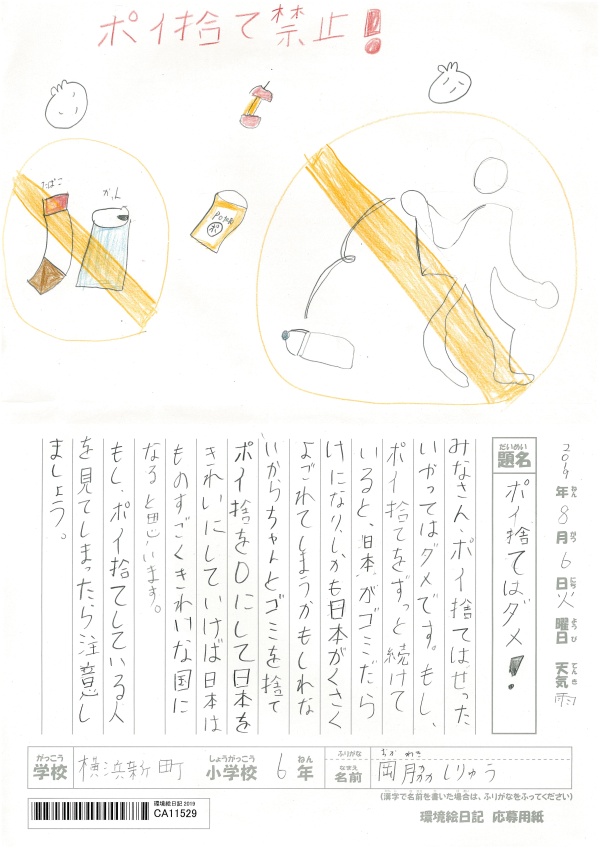 ポイ捨て禁止!
たばこ
かん
Potato
ポ
2019年8月6日火曜日 天気 雨
ねん がつ にち ようび てんき
だいめい
題名 ポイ捨てはダメ!
みなさん、ポイ捨てはぜった
いがってはダメです。もし、
ポイ捨てをずっと続けて
いると、日本がゴミだら
けになり、しかも日本がくさく
よごれてしまうかもしれな
いからちゃんとゴミを捨て
ポイ捨を0にして日本を
きれいにしていけば日本は
ものすごくきれいな国に
なると思います。
もし、ポイ捨てしている人
を見てしまったら注意し
ましょう。
がっこう しょうがっこう ねん ふりがな
学校 横浜新町 小学校 6年 なまえ 名前 岡脇しりゅう
(漢字で名前を書いた場合は、ふりがなをふってください)
環境絵日記 2019
CA11529
環境絵日記 応募用紙